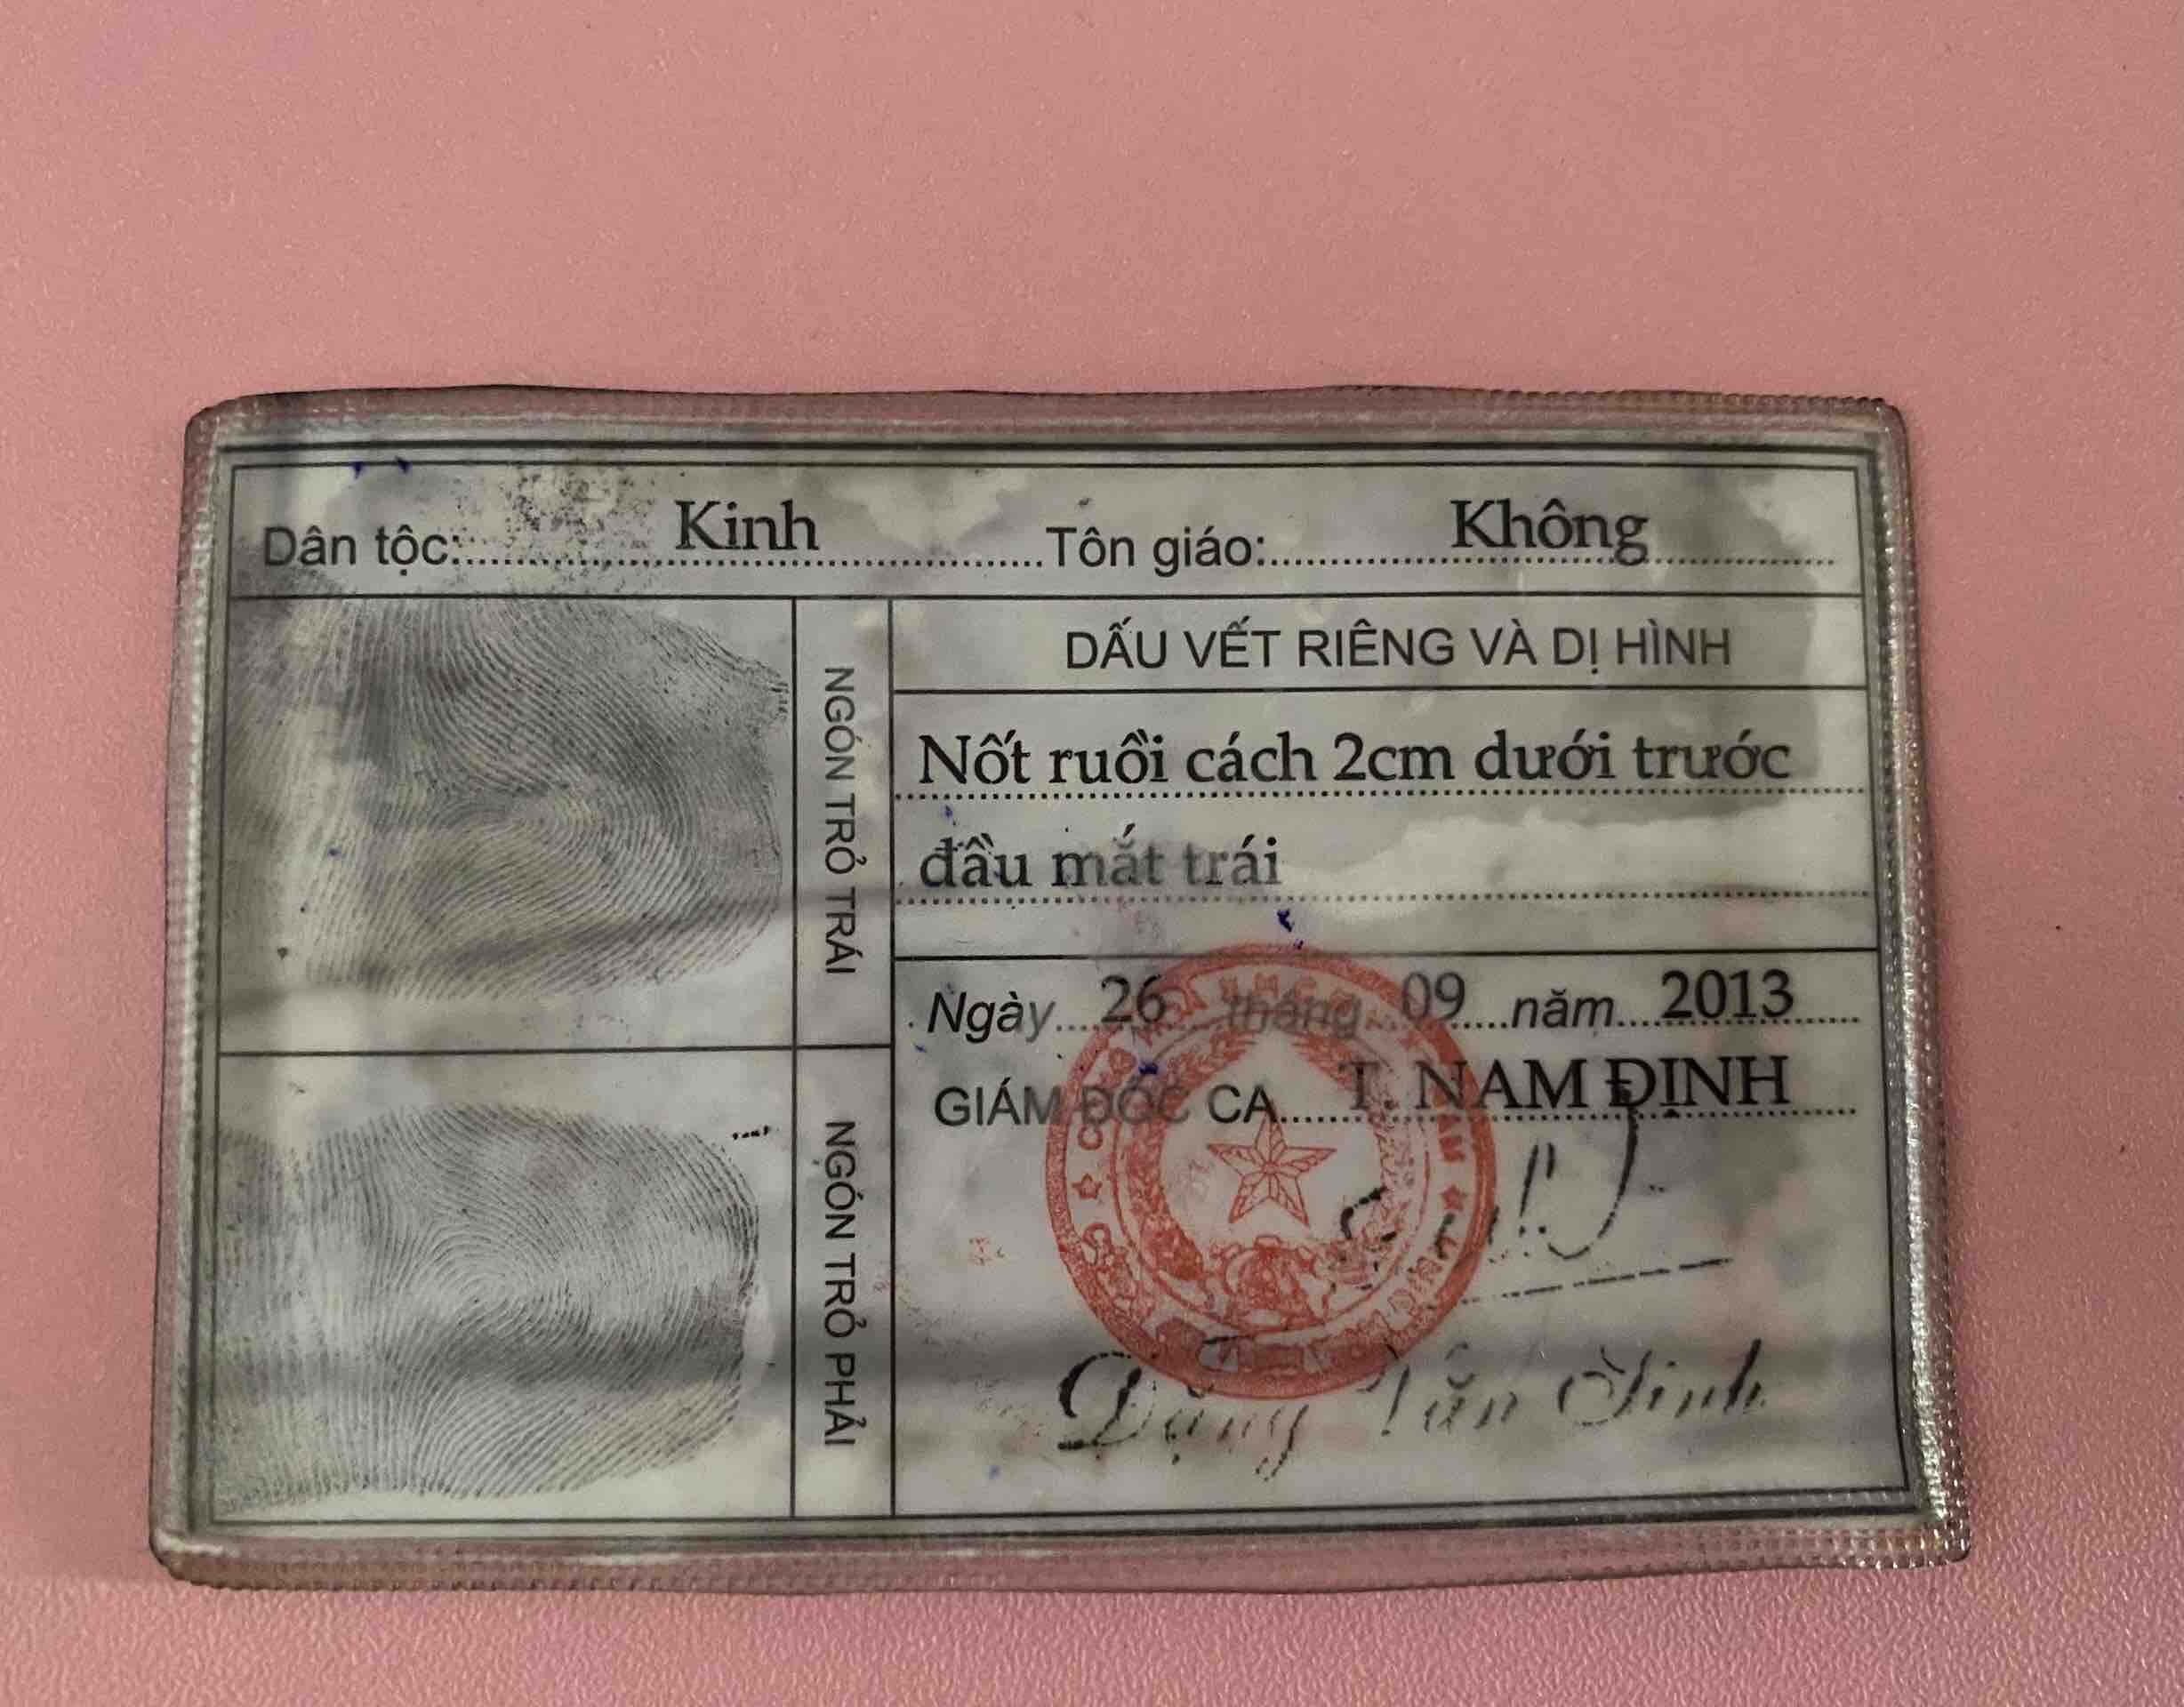 Dân tộc: Kinh Tôn giáo: Không
NGÓN TRỎ TRÁI
DẤU VẾT RIÊNG VÀ DỊ HÌNH
Nốt ruồi cách 2cm dưới trước
đầu mắt trái
Ngày 26 tháng 09 năm 2013
GIÁM ĐỐC CA T. NAM ĐỊNH
NGÓN TRỎ PHẢI
Đặng Văn Sinh